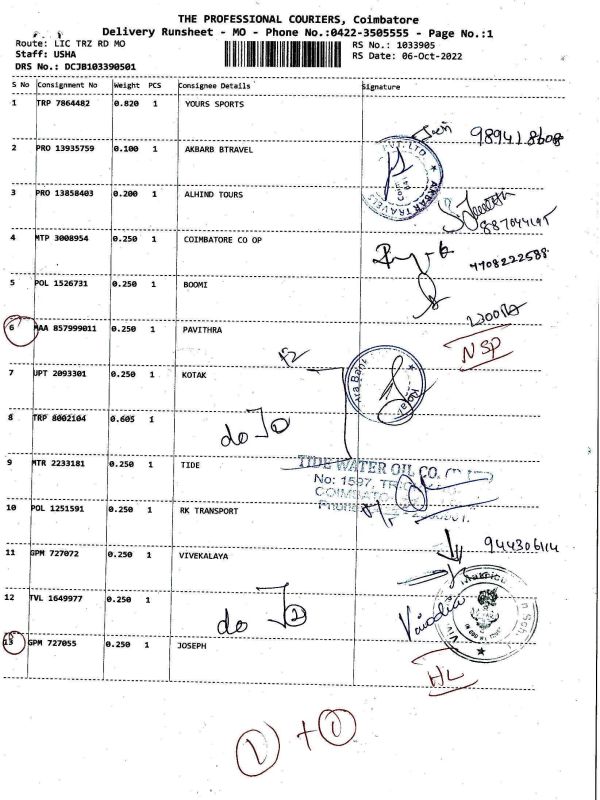 THE PROFESSIONAL COURIERS, Coimbatore
Delivery Runsheet - MO - Phone No.:0422-3505555 - Page No.:1
Route: LIC TRZ RD MO
Staff: USHA
DRS No.: DCJB103390501
RS No.: 1033905
RS Date: 06-Oct-2022
S No Consignment No Weight PCS Consignee Details Signature
1 TRP 7864482 0.820 1 YOURS SPORTS
2 PRO 13935759 0.100 1 AKBARB BTRAVEL
PVT. LTD
AKBAR TRAVELS
3 PRO 13858403 0.200 1 ALHIND TOURS
4 MTP 3008954 0.250 1 COIMBATORE CO OP
4708222588
5 POL 1526731 0.250 1 BOOMI
6 MAA 857999011 0.250 1 PAVITHRA
NSP
7 UPT 2093301 0.250 1 KOTAK
8 TRP 8002104 0.605 1
do
9 MTR 2233181 0.250 1 TIDE
TIDE WATER OIL CO.
No: 1597,
10 POL 1251591 0.250 1 RK TRANSPORT
11 GPM 727072 0.250 1 VIVEKALAYA
944306114
12 TVL 1649977 0.250 1
do 2
13 GPM 727055 0.250 1 JOSEPH
HL